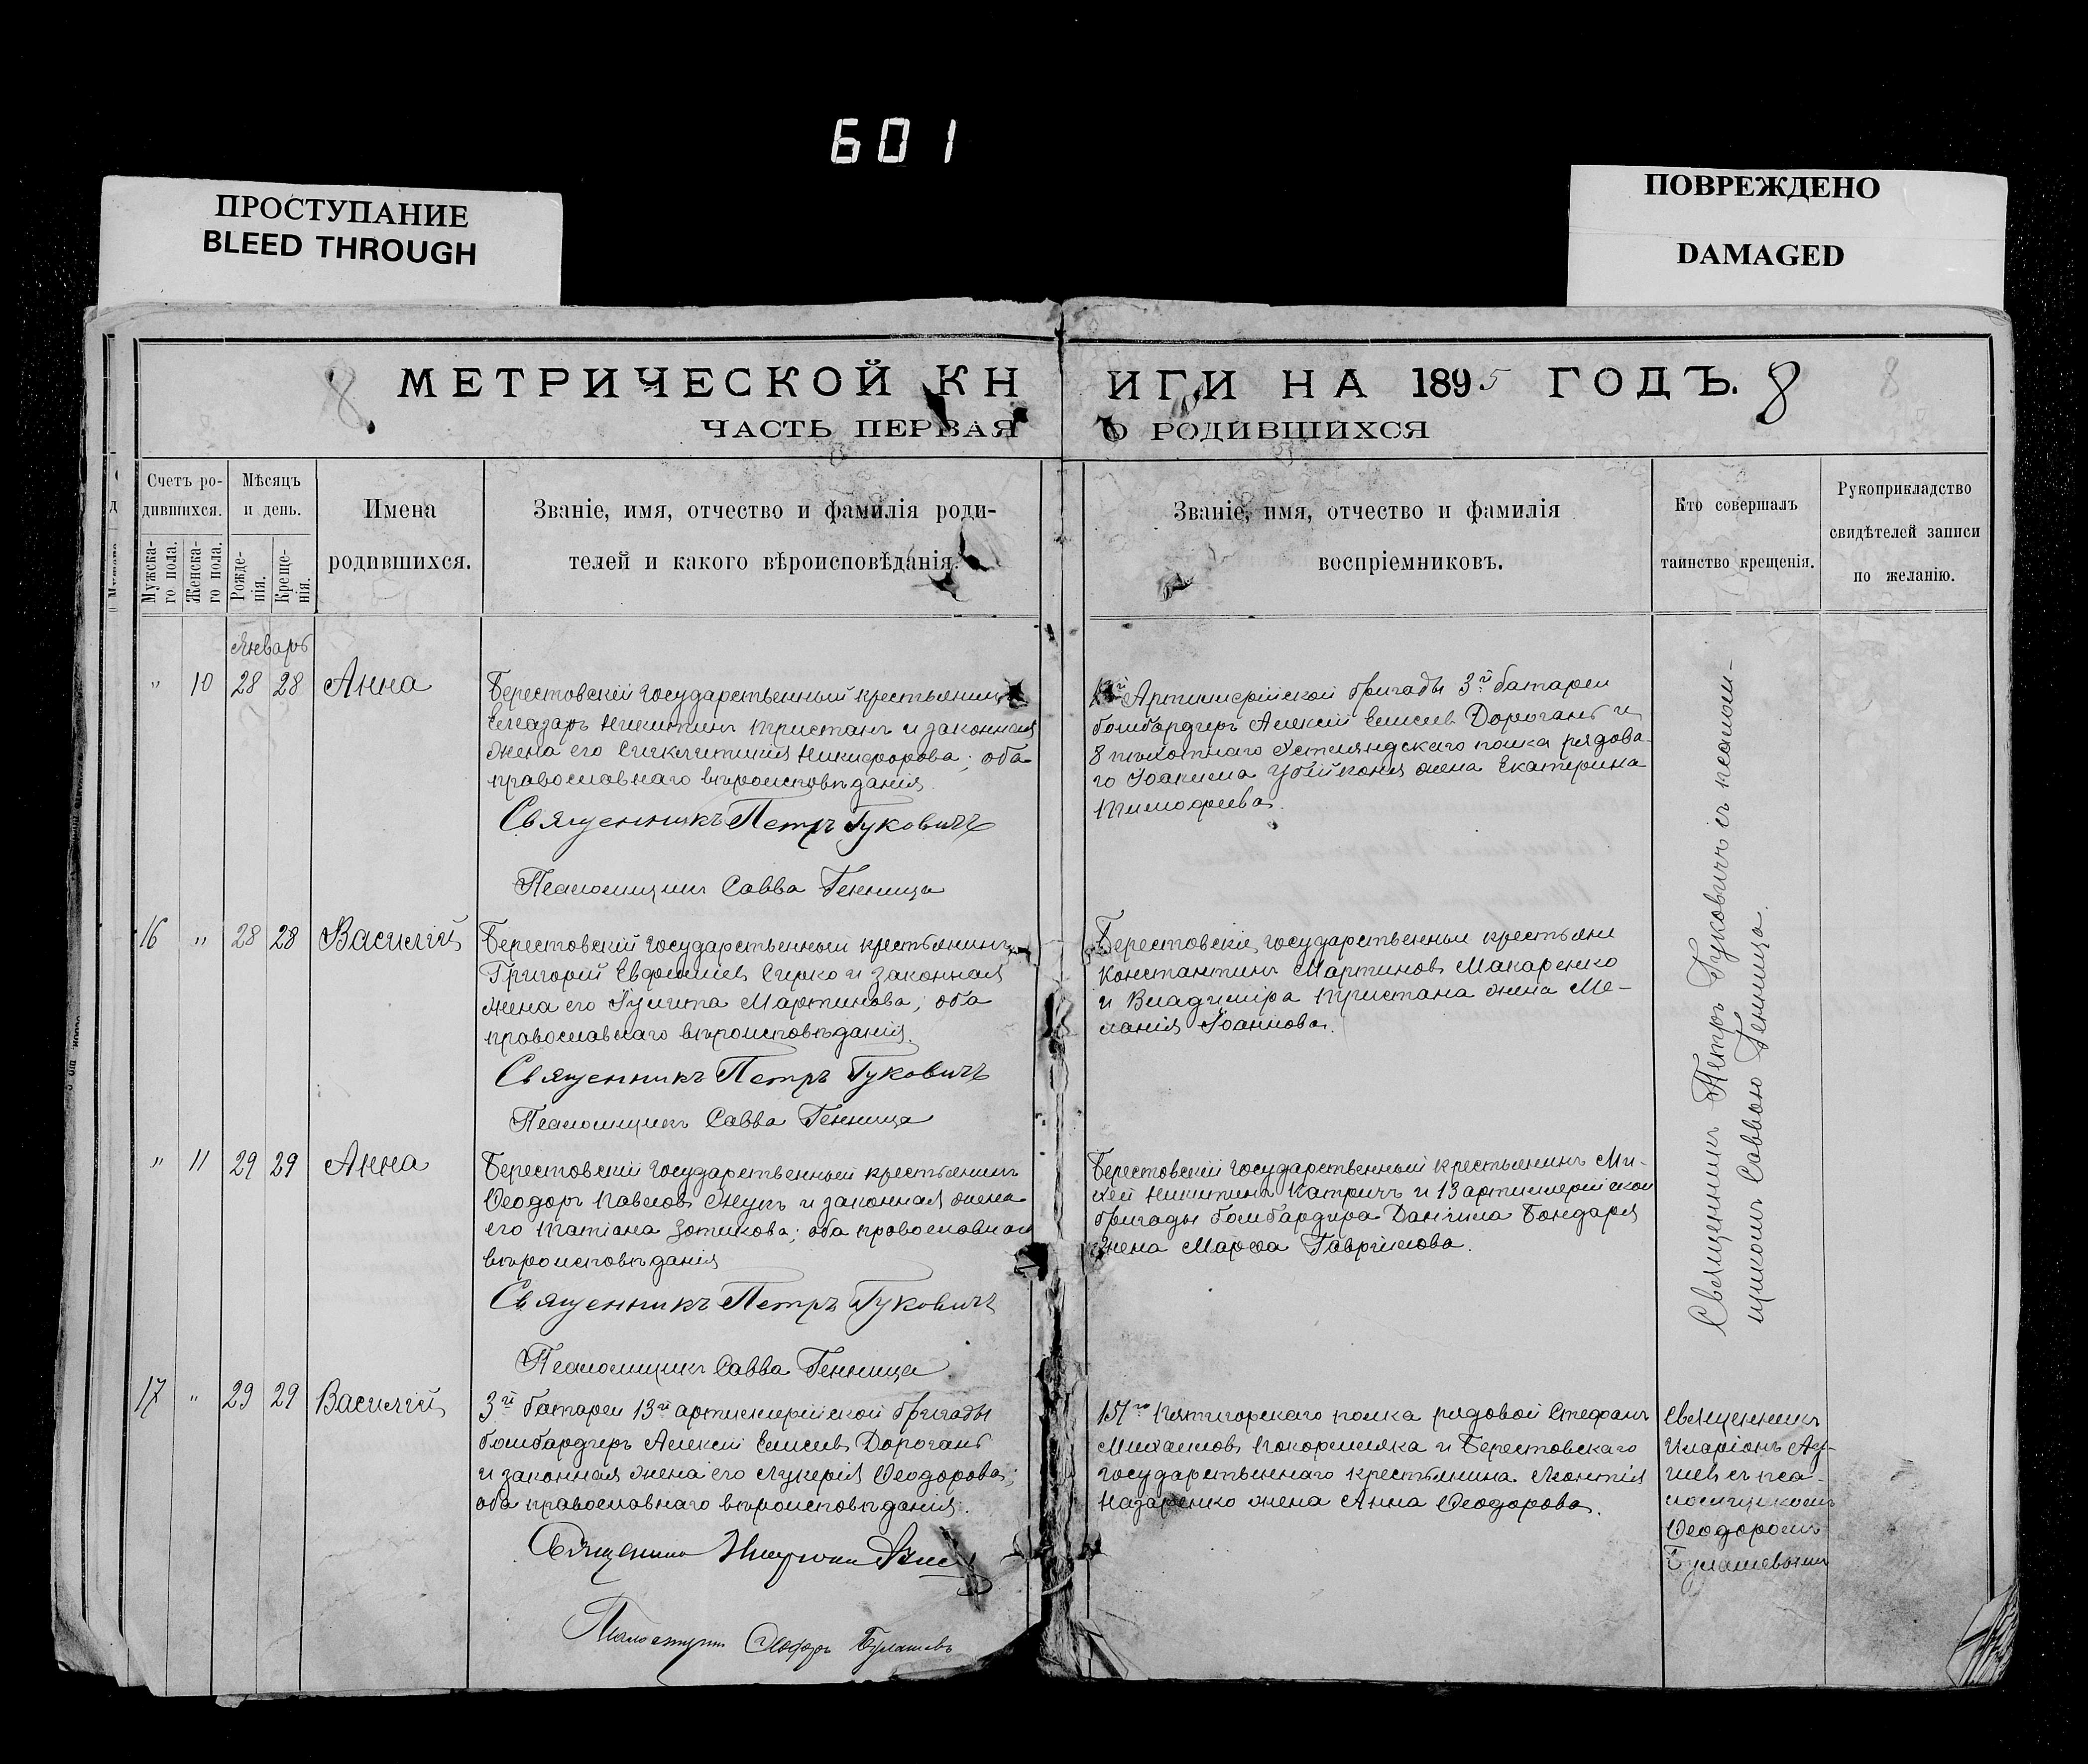 601
ПРОСТУПАНИЕ
BLEED THROUGH
ПОВРЕЖДЕНО
DAMAGED
8 МЕТРИЧЕСКОЙ КН
ИГИ НА 1895 ГОДЪ. 8
ЧАСТЬ ПЕРВАЯ
О РОДИВШИХСЯ
Счетъ ро-
дившихся.
Мужска-
го пола.
Женска-
го пола.
Мѣсяцъ
и день.
Рожде-
нія.
Креще-
нія.
Имена
родившихся.
Званіе, имя, отчество и фамилія роди-
телей и какого вѣроисповѣданія.
Званіе, имя, отчество и фамилія
воспріемниковъ.
Кто совершалъ
таинство крещенія.
Рукоприкладство
свидѣтелей записи
по желанію.
Январь
" 10 28 28 Анна
Берестовскій государственный крестьянинъ
Елеазаръ Никитинъ Тристанъ и законная
жена его Сигклитикия Никифорова; оба
православнаго вѣроисповѣданія.
Священникъ Петръ Гуковичъ
Псаломщикъ Савва Генница
Артиллерійской бригады 3й батареи
бомбардиръ Алексій Елисеевъ Дороганъ и
8 пѣхотнаго Эстляндскаго полка рядова-
го Іоакима жена Екатерина
Тимофеева.
16 " 28 28 Василій
Берестовскій государственный крестьянинъ
Григорій Евфимиевъ Сирко и законная
жена его Іулитта Мартинова; оба
православнаго вѣроисповѣданія.
Священникъ Петръ Гуковичъ
Псаломщикъ Савва Генница
Берестовскіе государственные крестьяне
Константинъ Мартиновъ Макаренко
и Владиміра Тристана жена Ме-
ланія Іоаннова.
" 11 29 29 Анна
Берестовскій государственный крестьянинъ
Ѳеодоръ Павловъ и законная жена
его Татіана Зотикова; оба православнаго
вѣроисповѣданія
Священникъ Петръ Гуковичъ
Псаломщикъ Савва Генница
Берестовскій государственный крестьянинъ Ми-
хей Никитинъ Катричъ и 13 артиллерійской
бригады бомбардира Даніила Бондаря
жена Марѳа Гавріилова.
Священникъ Петръ Гуковичъ съ псалом-
щикомъ Саввою Генница.
17 " 29 29 Василій
3й батареи 13й артиллерійской бригады
бомбардиръ Алексій Елисеевъ Дороганъ
и законная жена его Лукерія Ѳеодорова;
оба православнаго вѣроисповѣданія.
Священникъ Иларіонъ
Псаломщикъ Ѳеодоръ Булашевъ
151го Пятигорскаго полка рядовой Стефанъ
Михаиловъ и Берестовскаго
государственнаго крестьянина Леонтія
Назаренко жена Анна Ѳеодорова.
Священникъ
Иларіонъ
съ пса-
ломщикомъ
Ѳеодоромъ
Булашевымъ